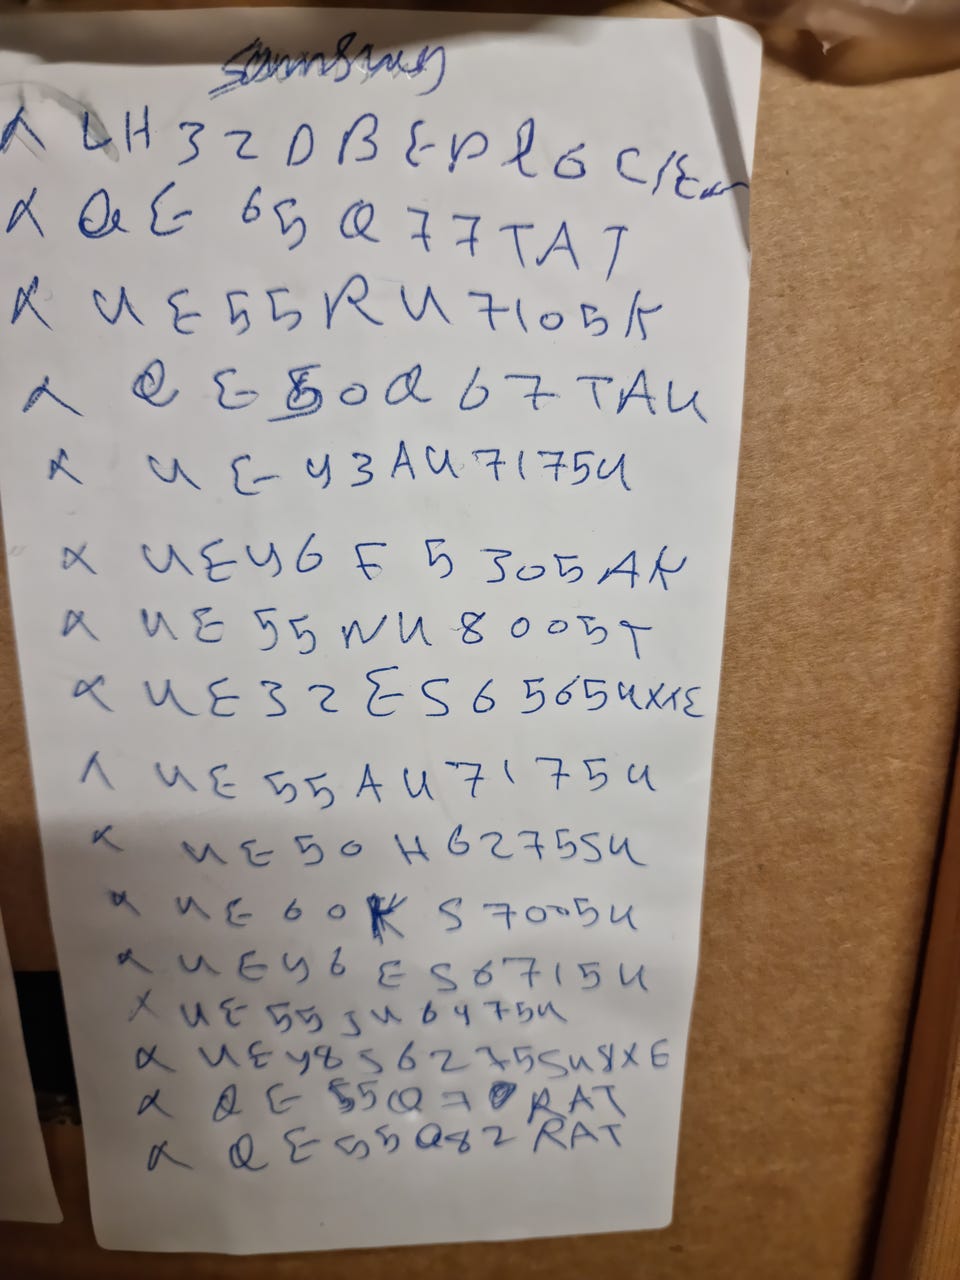 Samsung
x LH32DBEPLGC/EN
x QE65Q77TAT
x UE55RU7105K
x QE50Q67TAU
x UE43AU7175U
x UE46F5305AK
x UE55NU8005T
x UE32ES6565UXXE
x UE55AU7175U
x UE50H6275SU
x UE60KS7005U
x UE46ES6715U
x UE55JU6475U
x UE48S6275SU8XE
x QE55Q70RAT
x QE55Q82RAT